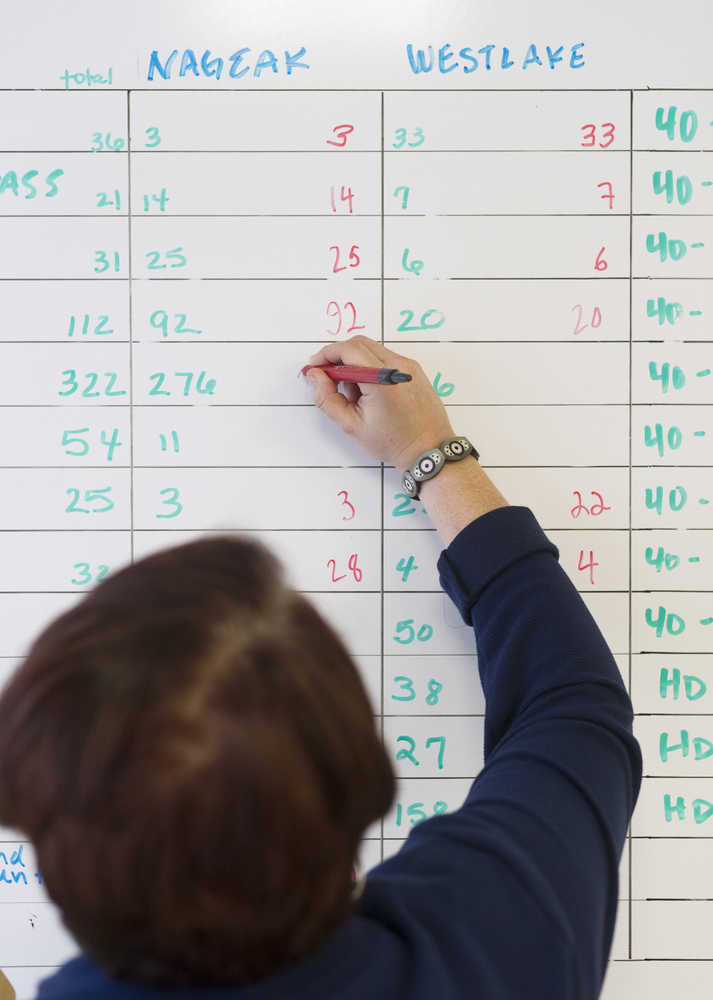 total NAGEAK WESTLAKE
36 3 3 33 33 40-
ASS 21 14 14 7 7 40-
31 25 25 6 6 40-
112 92 92 20 20 40-
322 276 6 40-
54 11 40-
25 3 3 2 22 40-
32 28 4 4 40-
50 40-
38 HD
27 HD
158 HD